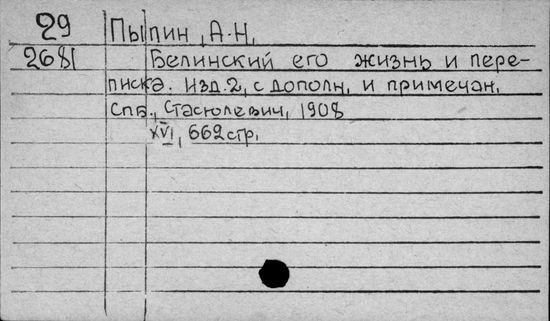 29 Пыпин, А.Н.
2681 Белинский его жизнь и пере-
писка. Изд.2, с дополн. и примечан.
Спб., Стасюлевич, 1908
XVI, 662 стр.